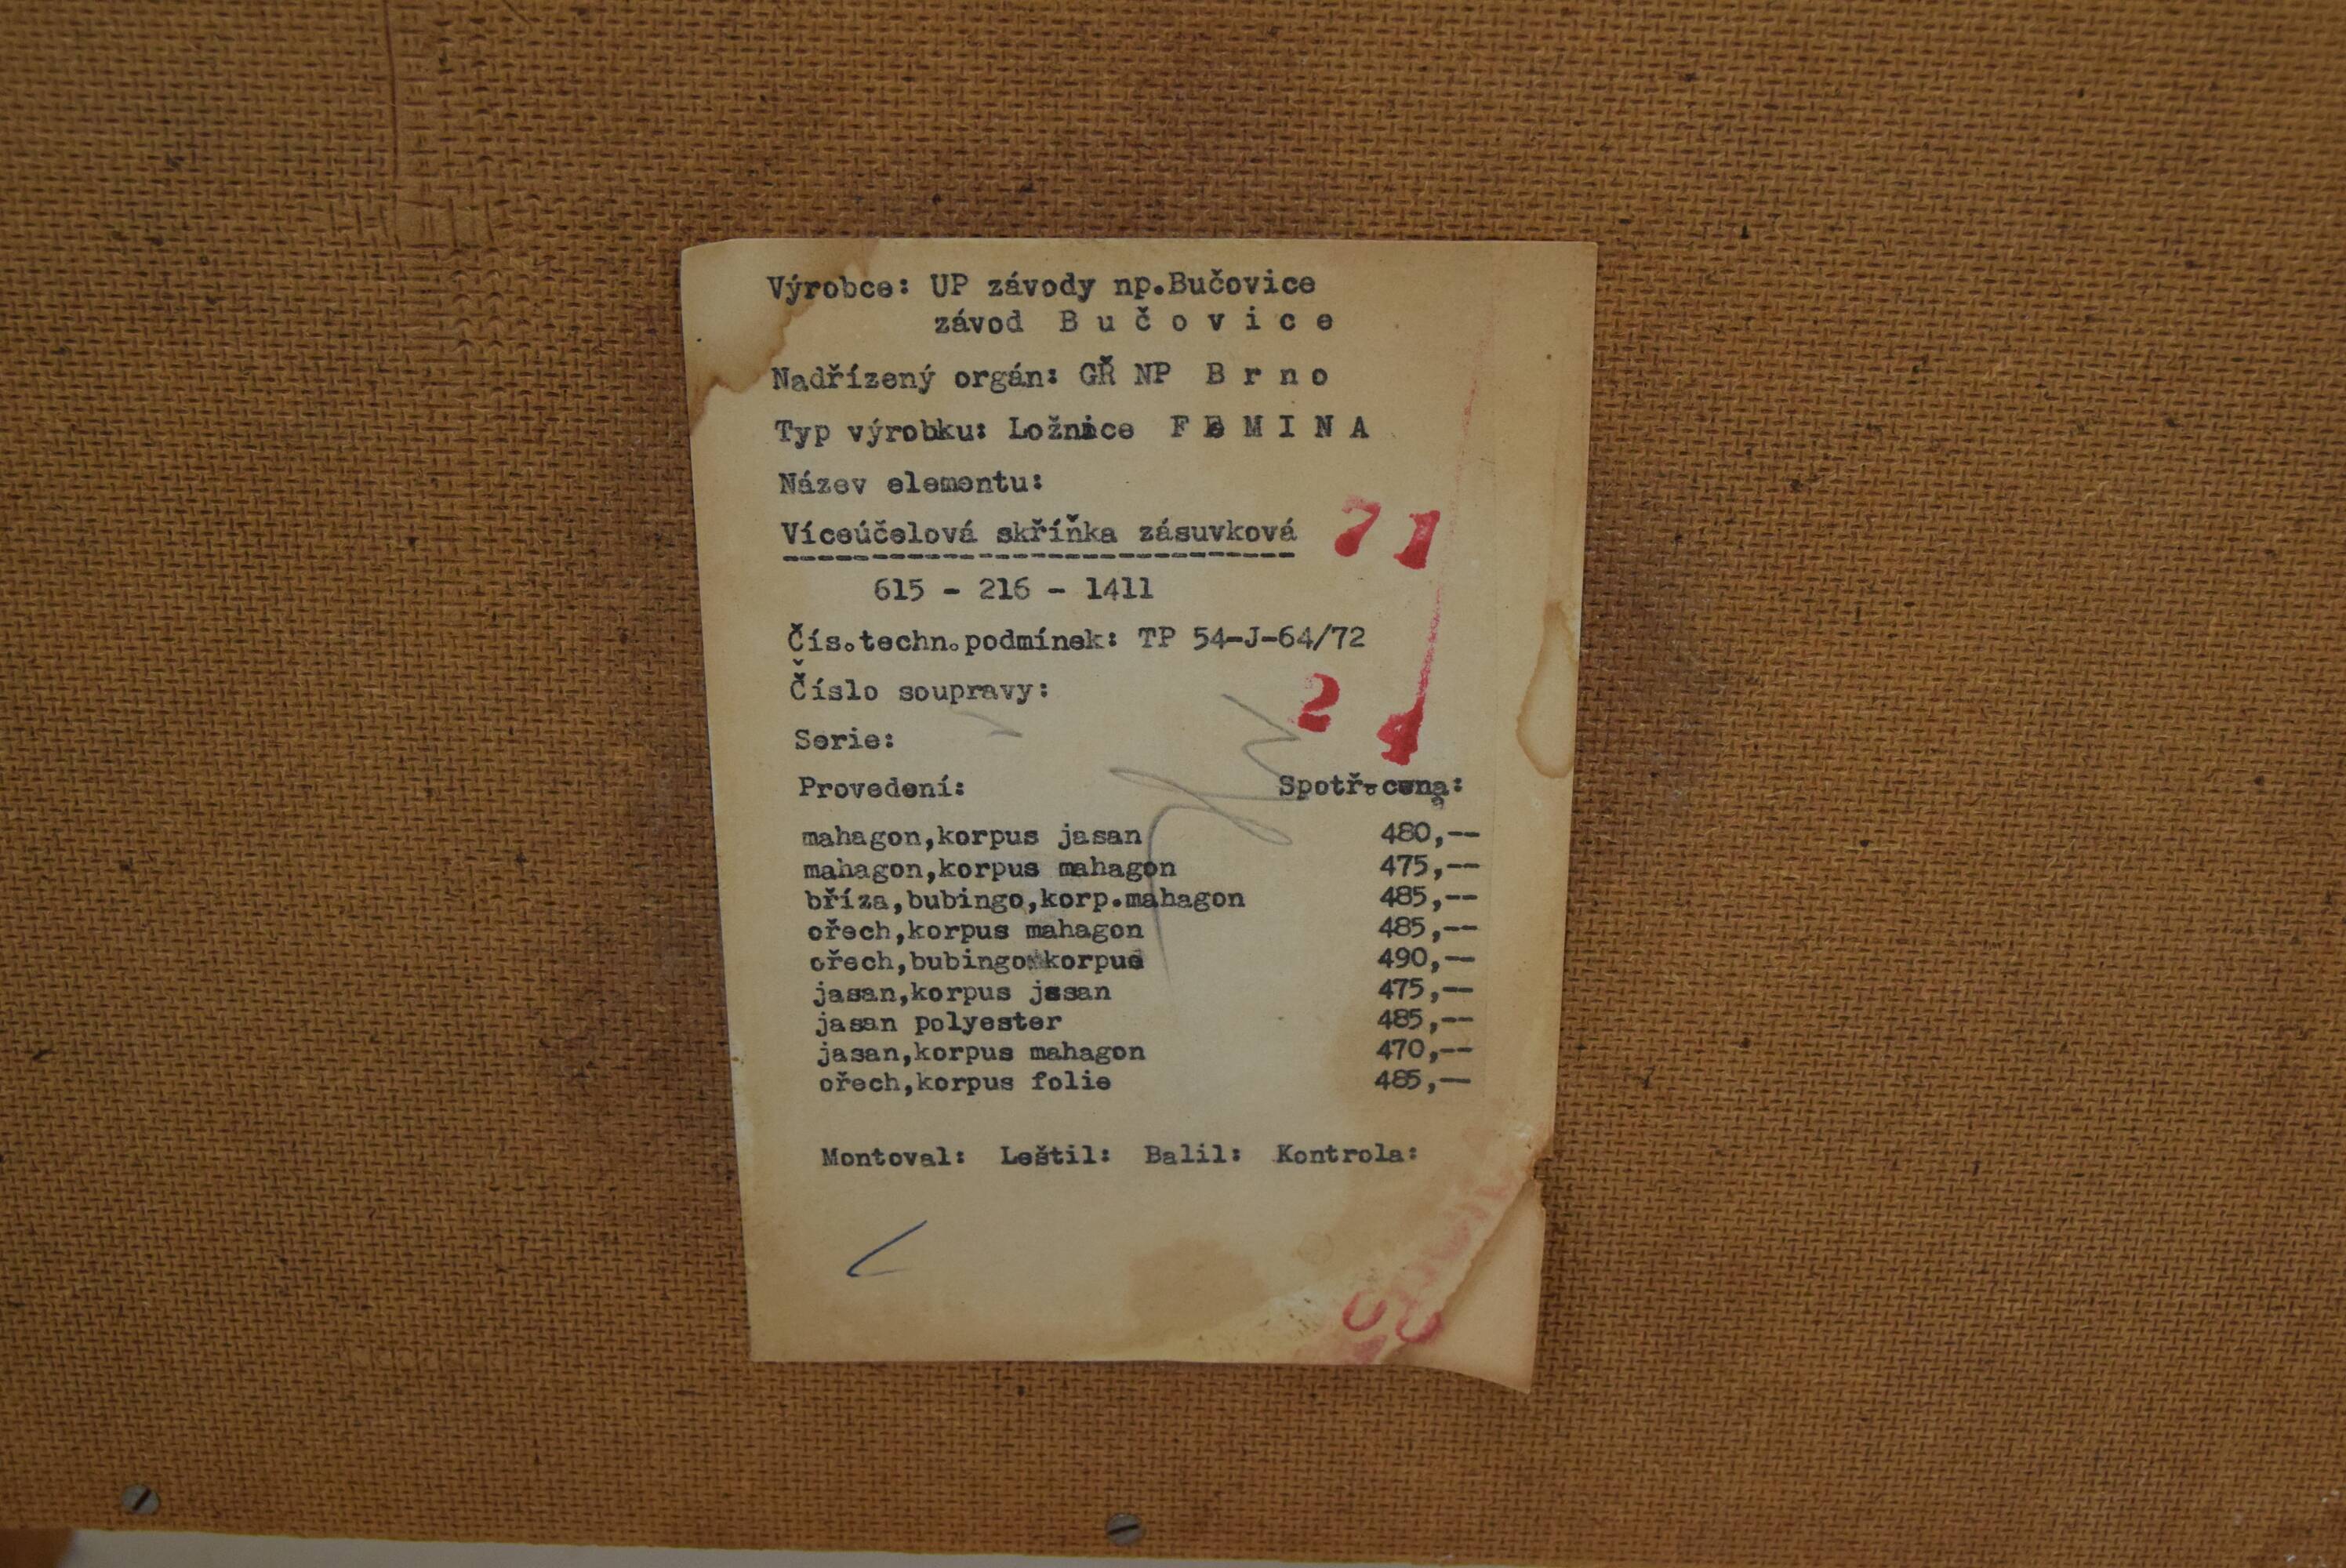 Výrobce: UP závody np.Bučovice
závod B u č o v i c e
Nadřízený orgán: GŘ NP B r n o
Typ výrobku: Ložnice F E M I N A
Název elementu:
Víceúčelová skříňka zásuvková 71
615 - 216 - 1411
Čís.techn.podmínek: TP 54-J-64/72
Číslo soupravy: 2
Serie: 4
Provedení: Spotř.cena:
mahagon,korpus jasan 480,--
mahagon,korpus mahagon 475,--
bříza,bubingo,korp.mahagon 485,--
ořech,korpus mahagon 485,--
ořech,bubingo korpus 490,--
jasan,korpus jasan 475,--
jasan polyester 485,--
jasan,korpus mahagon 470,--
ořech,korpus folie 485,--
Montoval: Leštil: Balil: Kontrola: